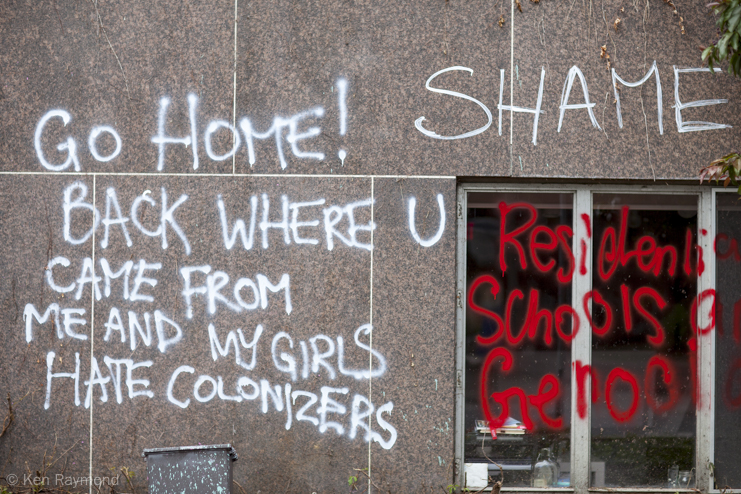 Go Home!
BACK WHERE U
CAME FROM
ME AND MY GIRLS
HATE COLONIZERS
SHAME
Residential
Schools
Genoc
© Ken Raymond